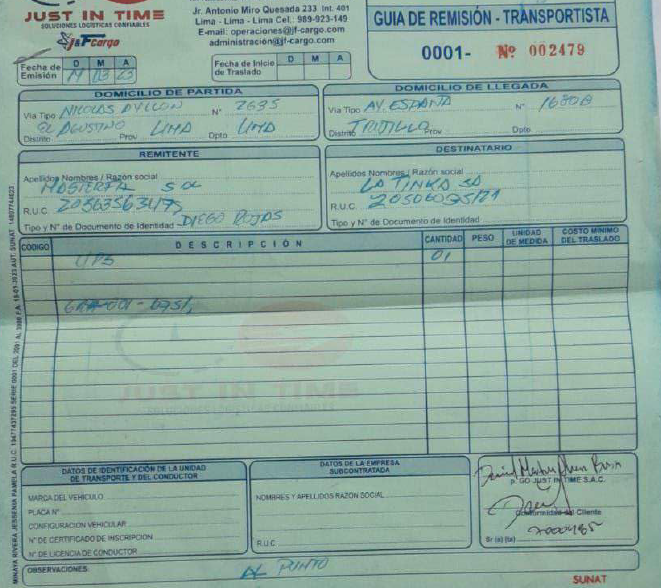 JUST IN TIME
SOLUCIONES LOGISTICAS CONFIABLES
J&F Cargo
Jr. Antonio Miro Quesada 233 Int. 401
Lima - Lima - Lima Cel.: 989-923-149
E-mail: operaciones@jf-cargo.com
administración@jf-cargo.com
GUIA DE REMISIÓN - TRANSPORTISTA
0001- Nº 002479
Fecha de Emisión D M A
03 23
Fecha de Inicio de Traslado D M A
DOMICILIO DE PARTIDA
Vía Tipo NICOLAS AYLLON N° 2635
Distrito EL AGUSTINO Prov LIMA Dpto LIMA
DOMICILIO DE LLEGADA
Vía Tipo AV. ESPAÑA N° 1680B
Distrito TRUJILLO Prov Dpto
REMITENTE
Apellidos Nombres / Razón social
R.U.C.
Tipo y N° de Documento de Identidad DIEGO ROJAS
DESTINATARIO
Apellidos Nombres / Razón social
LA TINKA SA
R.U.C.
Tipo y N° de Documento de Identidad
CODIGO DESCRIPCIÓN CANTIDAD PESO UNIDAD DE MEDIDA COSTO MINIMO DEL TRASLADO
UPS 01
JUST IN TIME
DATOS DE IDENTIFICACIÓN DE LA UNIDAD
DE TRANSPORTE Y DEL CONDUCTOR
MARCA DEL VEHICULO
PLACA N°
CONFIGURACION VEHICULAR
N° DE CERTIFICADO DE INSCRIPCION
N° DE LICENCIA DE CONDUCTOR
DATOS DE LA EMPRESA
SUBCONTRATADA
NOMBRES Y APELLIDOS RAZON SOCIAL
R.U.C.
p. GO JUST IN TIME S.A.C.
Conformidad del Cliente
Sr (a) (ta)
OBSERVACIONES: AL PUNTO
SUNAT